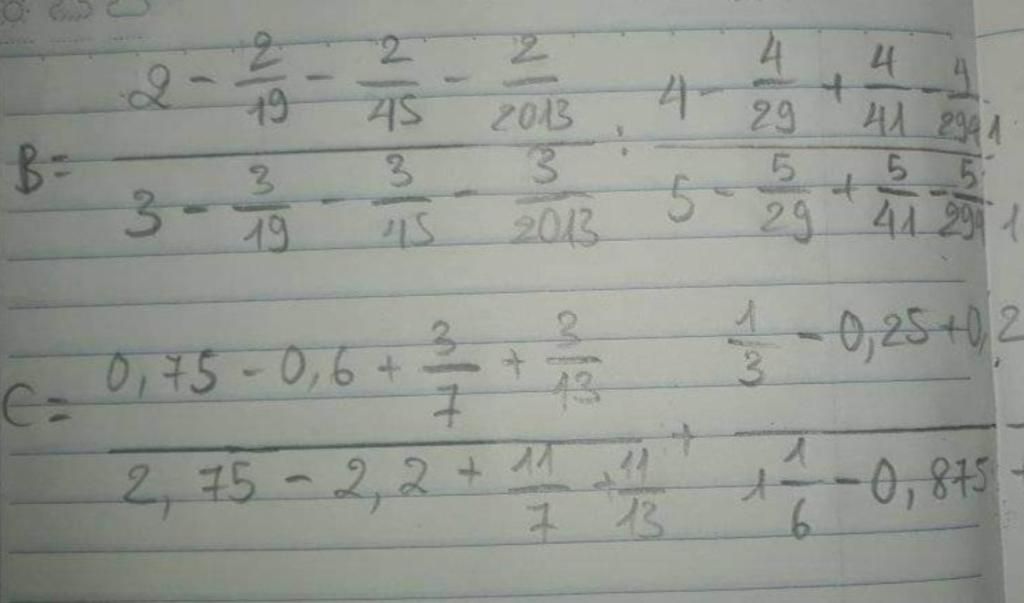 B = (2 - 2/19 - 2/45 - 2/2013) / (3 - 3/19 - 3/45 - 3/2013) : (4 - 4/29 + 4/41 - 4/2941) / (5 - 5/29 + 5/41 - 5/2941)
C = (0,75 - 0,6 + 3/7 + 3/13) / (2,75 - 2,2 + 11/7 + 11/13) + (1/3 - 0,25 + 0,2) / (1 1/6 - 0,875 +